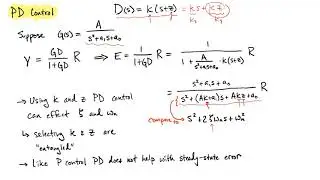 PD Control
D(s) = k(s+z) = ks + kz
k₁ k₂
Suppose G(s) = A / (s²+a₁s+a₀)
Y = GD/(1+GD) R ⇒ E = 1/(1+GD) R = 1 / (1 + A/(s²+a₁s+a₀) k(s+z)) R
= (s²+a₁s+a₀) / (s²+(Ak+a₁)s+Akz+a₀) R
compare to s²+2ζωₙs+ωₙ²
→ Using k and z PD control
can effect ζ and ωₙ
→ selecting k & z are
"entangled"
→ Like P control PD does not help with steady-state error